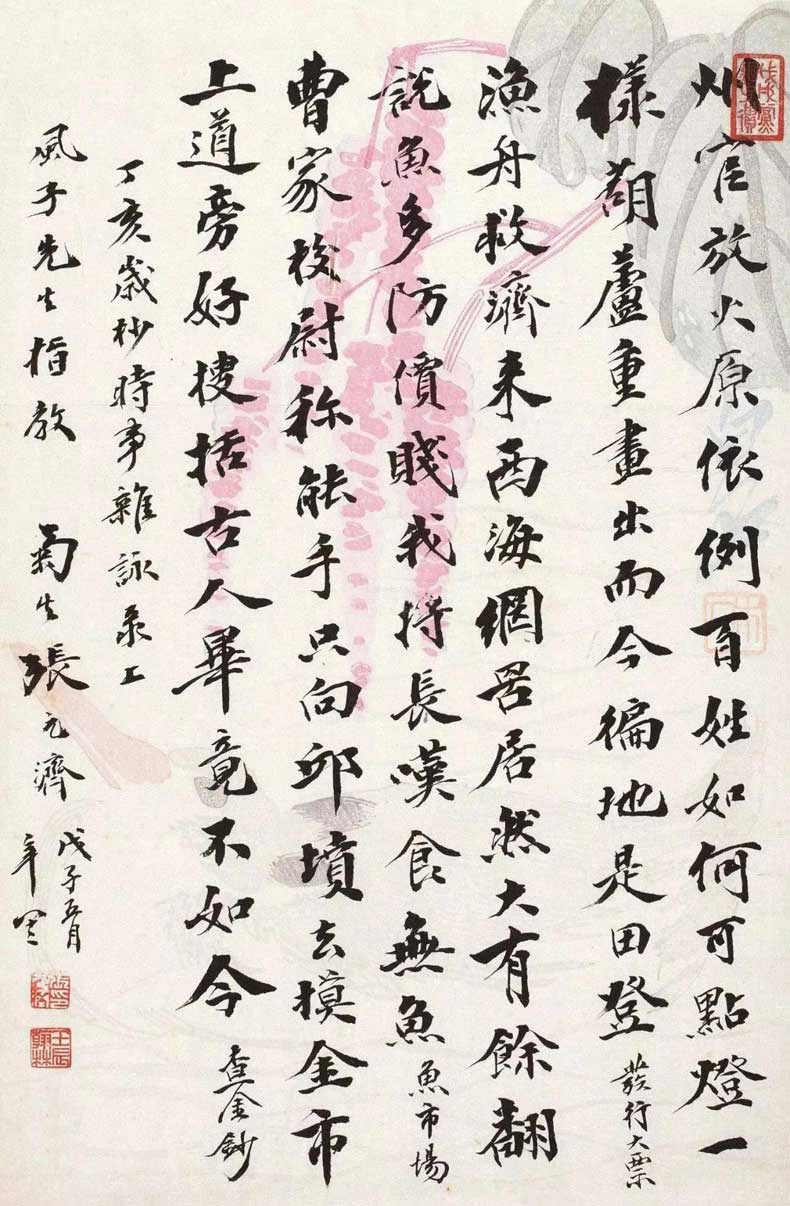 州官放火原依例百姓如何可點燈一
樣葫蘆重畫出而今徧地是田登 發行大票
漁舟救濟来西海網罟居然大有餘翻
說魚多防價賤我将長嘆食無魚 魚市場
曹家校尉称能手只向邱墳去摸金市
上道旁好搜括古人畢竟不如今 查金鈔
丁亥歲杪時事雜詠录上
風子先生指教 菊生張元濟
戊子五月
年
壬辰翰林